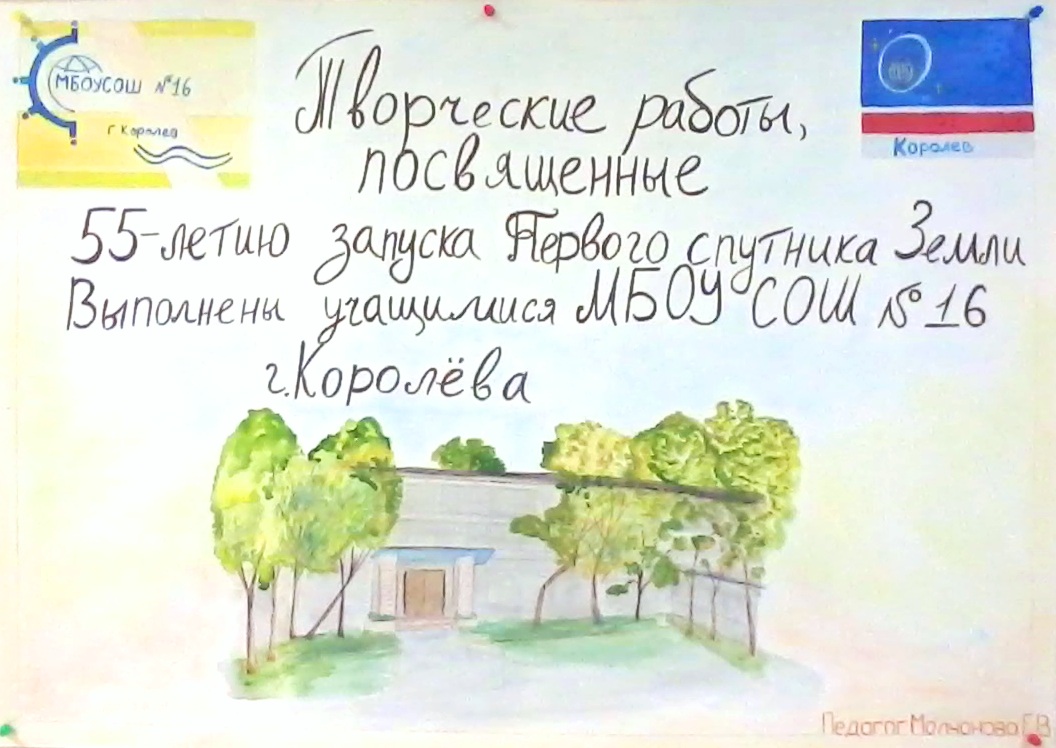 МБОУСОШ №16
г Королев
Королев
Творческие работы,
посвященные
55-летию запуска Первого спутника Земли
Выполнены учащимися МБОУ СОШ № 16
г. Королёва
Педагог